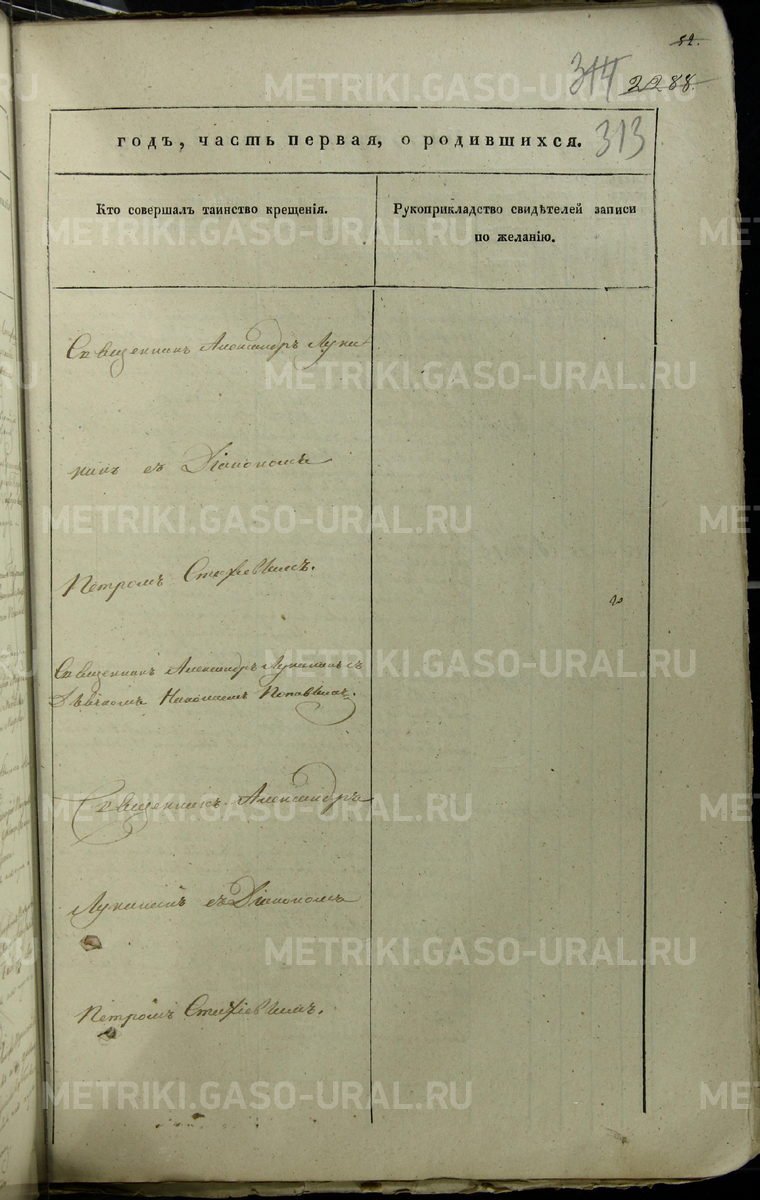 52.
314
2288.
313
годъ, часть первая, о родившихся.
Кто совершалъ таинство крещенія.
Рукоприкладство свидѣтелей записи
по желанію.
Священникъ Александръ Лука
нинъ съ Діакономъ
Петромъ
Священникъ Александръ Луканинъ съ
Дьячкомъ Николаемъ Поповымъ.
Священникъ Александръ
Луканинъ съ Діакономъ
Петромъ
METRIKI.GASO-URAL.RU